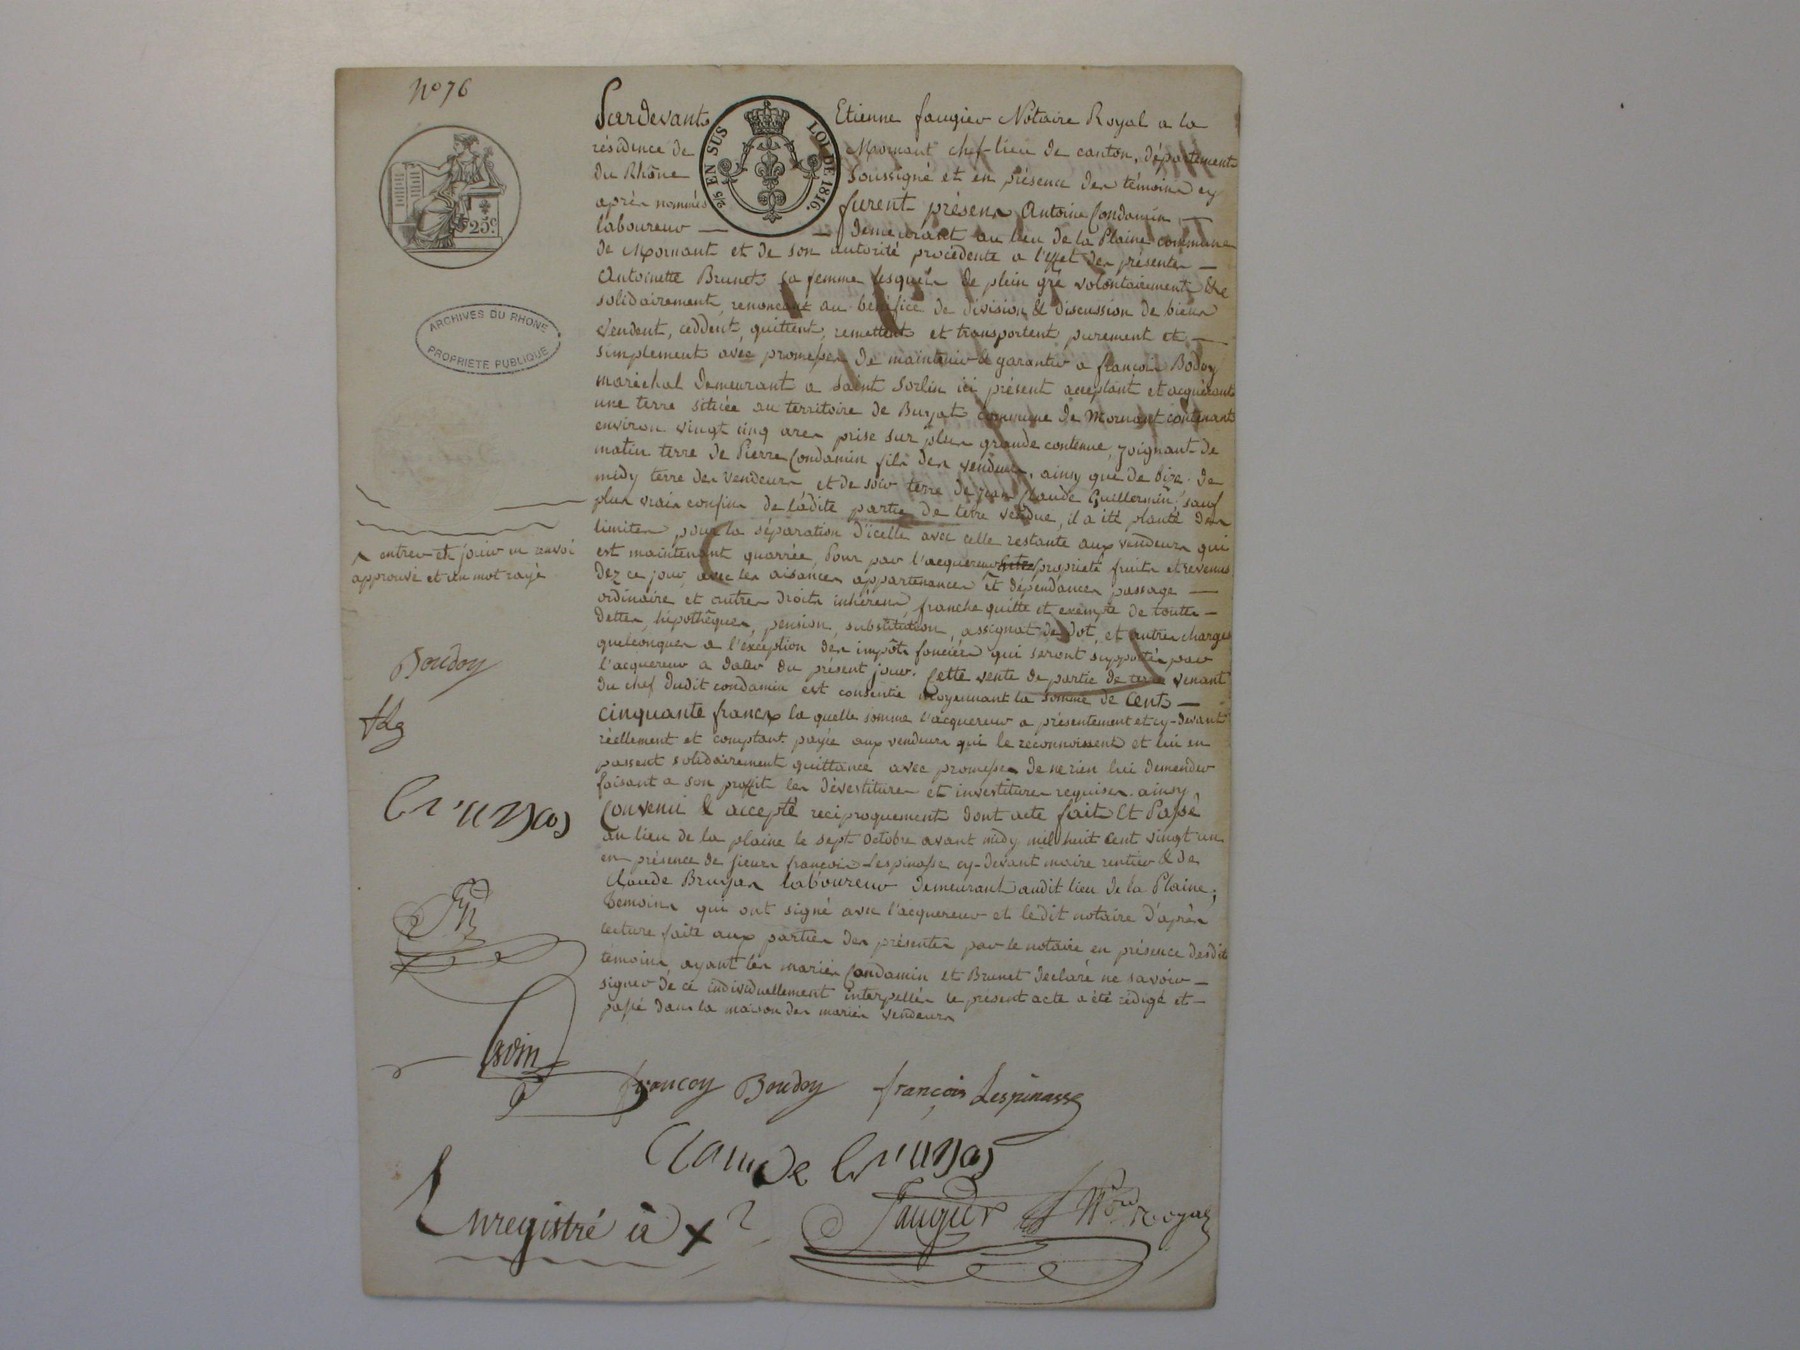 No 76
Pardevant Etienne faugier Notaire Royal a la
résidence de Mornant chef-lieu de canton, département
du Rhône soussigné et en présence des témoins cy
après nommés furent présens Antoine Condamin
laboureur demeurant au lieu de la Plaine commune
de Mornant et de son autorité procédente a l'effet des présentes
Antoinette Brunet sa femme lesquels de plein gré volontairement &
solidairement, renonçant au bénéfice de division & discussion de biens
vendent, cèddent, quittent, remettent et transportent purement et
simplement avec promesses de maintenir & garantir a françois Bodoy
maréchal demeurant a saint Sorlin ici présent acceptant et acquérant
une terre située au territoire de commune de Mornant contenant
environ vingt cinq ares prise sur plus grande contenue, joignant de
matin terre de Pierre Condamin fils des vendeurs, ainsy que de bize. de
midy terre des vendeurs et de soir terre de jean Claude Guillermin, sauf
plus vrais confins de ladite partie de terre vendue, il a été planté des
limites pour la séparation d'icelle avec celle restante aux vendeurs qui
est maintenant quarrée, Pour par l'acquereur propriété fruits et revenus
dez ce jour, avec les aisances appartenances et dépendances passage
ordinaire et autres droits inhérens franche quitte et exempte de toutes
dettes, hipothêques, pension, substitution, assignat de dot, et autres charges
quelconques a l'exception des impôts fonciers qui seront supportés par
l'acquereur a dater du présent jour. Cette vente de partie de terre venant
du chef dudit condamin est consentie moyennant la somme de Cent
cinquante francs la quelle somme l'acquereur a présentement et cy-devant
réellement et comptant payée aux vendeurs qui le reconnoissent et lui en
passent solidairement quittance avec promesse de ne rien lui demender
faisant a son proffit les dévestitures et investitures requises. ainsy
Convenu & accepté réciproquement dont acte fait Et Passé
au lieu de la plaine le sept Octobre avant midy mil huit Cent vingt un
en présence de sieurs françois Lespinasse cy-devant maire rentier & de
Claude Bruyas laboureur demeurant audit lieu de la Plaine,
témoins qui ont signé avec l'acquereur et ledit notaire d'après
lecture faite aux parties des présentes par le notaire en présence desdits
témoins, ayant les mariés Condamin et Brunet déclaré ne savoir
signer de ce individuellement interpellés le présent acte a été rédigé et
passé dans la maison des mariés vendeurs
EN SUS LOI DE 1816.
25c
ARCHIVES DU RHONE
PROPRIETE PUBLIQUE
entrer et jouir un renvoi
approuvé et un mot rayé
Boudoy
bruyas
françoy Boudoy françois Lespinasse
Claude bruyas
Enregistré à
faugier Nre Royal